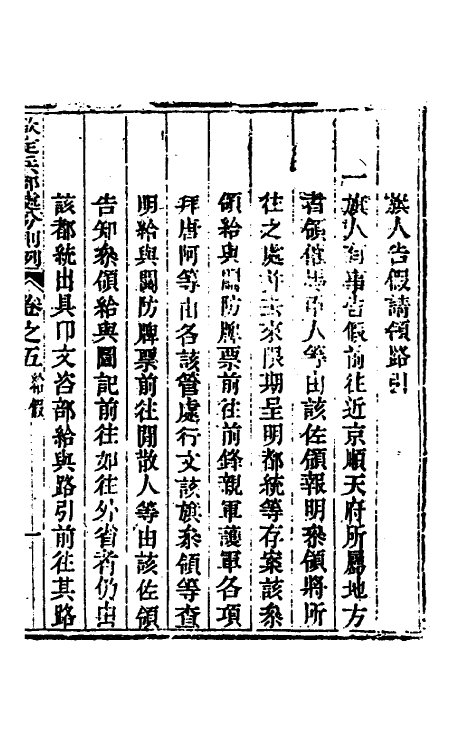 旗人告假請領路引
一旗人有事告假前往近京順天府所屬地方
者領催馬甲人等由該佐領報明叅領將所
往之處並去來限期呈明都統等存案該叅
領給與關防牌票前往前鋒親軍護軍各項
拜唐阿等由各該管處行文該旗叅領等查
明給與關防牌票前往閒散人等由該佐領
告知叅領給與圖記前往如往外省者仍由
該都統出具印文咨部給與路引前往其路
欽定兵部處分則例 卷之五 給假 一